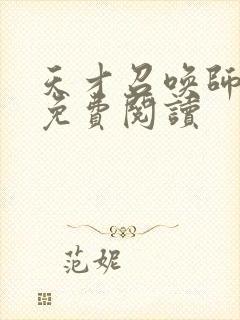 天才召唤師
免費閱讀
范妮